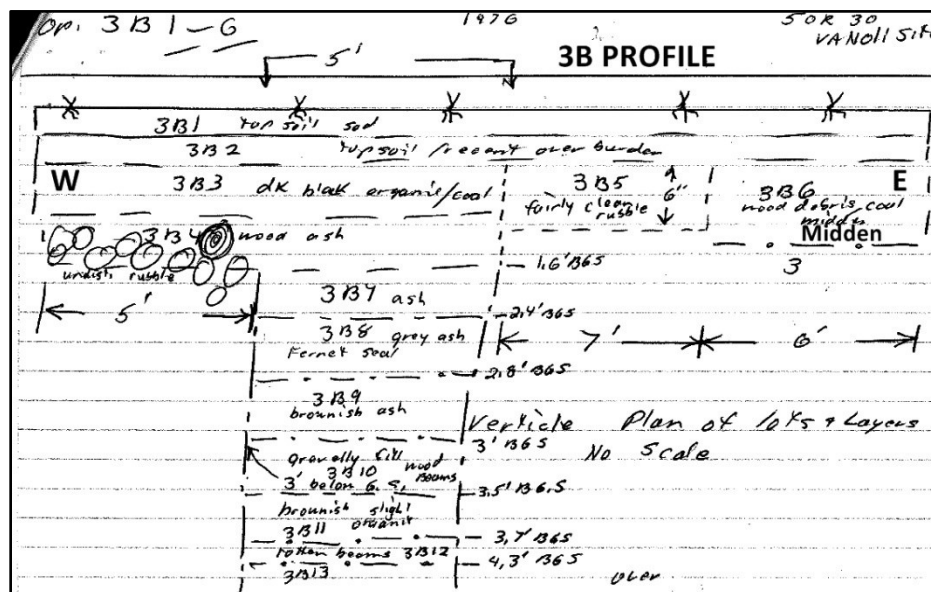 Op. 3B1-6 1976 5OR30
VANOLI SITE
5' 3B PROFILE
3B1 top soil sod
3B2 top soil/reecent over burden
W 3B3 dk blak organic/coal 3B5 3B6 E
fairly clean rubble 6" wood debris coal midden
Midden
3B4 wood ash
urdish rubble 3
1.6' BGS
5' 3B7 ash
2.4' BGS
3B8 grey ash 7' 6'
Fernet seal
2.8' BGS
3B9
brownish ash
Verticle Plan of lots & Layers
gravelly fill 3' BGS No Scale
3B10 wood beams
3' below G.S.
3.5' B6.S
brounish slight organic
3B11 3,7' BGS
rotten beams 3B12
4,3' BGS
3B13 over